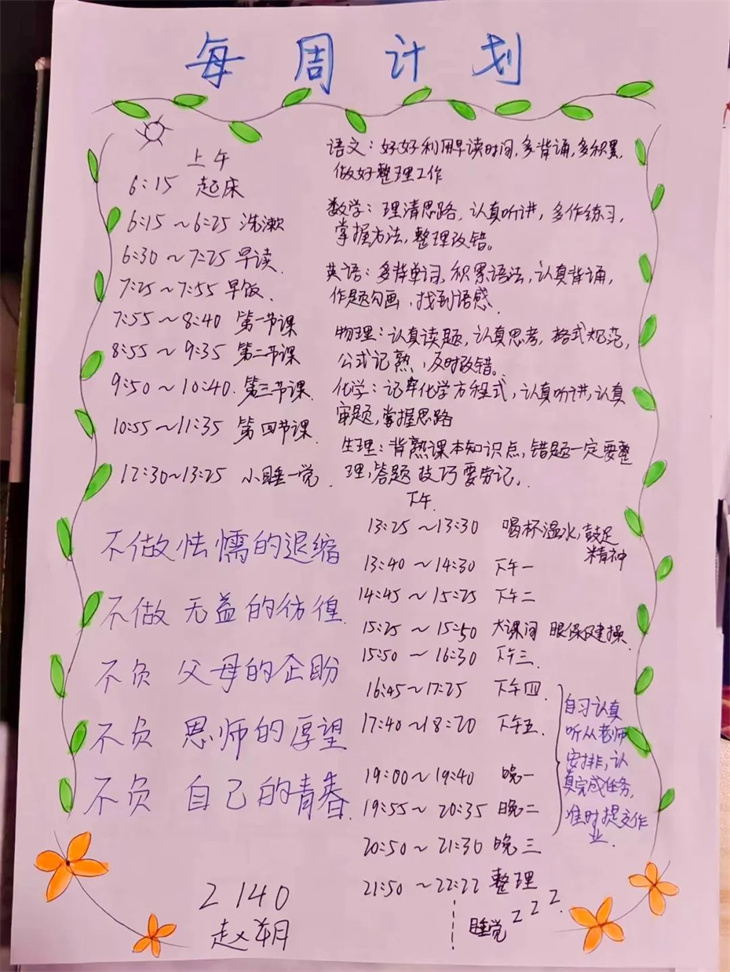 每周计划
上午
6:15 起床
6:15～6:25 洗漱
6:30～7:25 早读.
7:25～7:55 早饭.
7:55～8:40 第一节课
8:55～9:35 第二节课
9:50～10:40. 第三节课.
10:55～11:35 第四节课.
12:30～13:25 小睡一觉.
语文：好好利用早读时间,多背诵,多积累,
做好整理工作
数学：理清思路,认真听讲,多作练习,
掌握方法,整理改错。
英语：多背单词,积累语法,认真背诵,
作题勾画,找到语感.
物理：认真读题,认真思考,格式规范,
公式记熟,及时改错。
化学：记牢化学方程式,认真听讲,认真
审题,掌握思路
生理：背熟课本知识点,错题一定要整
理,答题技巧要劳记,
下午.
13:25～13:30 喝杯温水,鼓足
精神
13:40～14:30 下午一
14:45～15:25 下午二
15:25～15:50 大课间 眼保健操.
15:50～16:30 下午三.
16:45～17:25 下午四.
17:40～18:20 下午五.
19:00～19:40 晚一
19:55～20:35 晚二
20:50～21:30 晚三
21:50～22:22 整理
睡觉 z z z.
自习认真
听从老师
安排,认
真完成任务,
准时提交作
业.
不做怯懦的退缩
不做无益的彷徨.
不负父母的企盼
不负恩师的厚望
不负自己的青春.
2140
赵翔